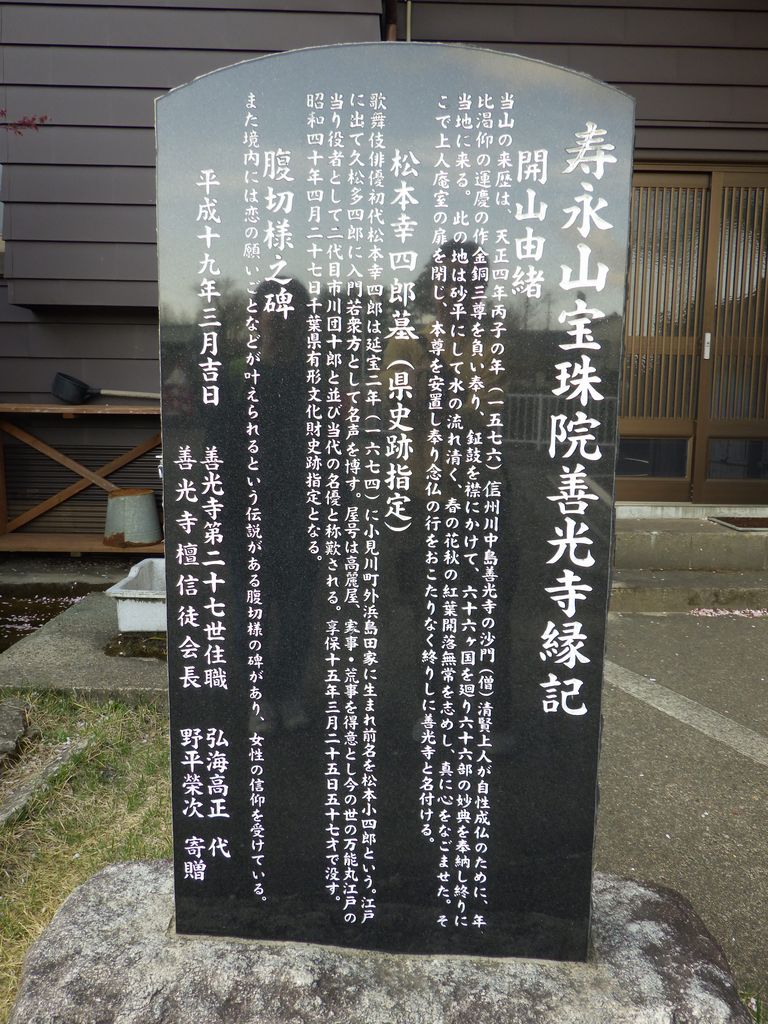 寿永山宝珠院善光寺縁記
開山由緒
当山の来歴は、天正四年丙子の年（一五七六）信州川中島善光寺の沙門（僧）清賢上人が自性成仏のために、年
比渇仰の運慶の作金銅三尊を負い奉り、鉦鼓を襟にかけて、六十六ヶ国を廻り六十六部の妙典を奉納し終りに
当地に来る。此の地は砂平にして水の流れ清く、春の花秋の紅葉開落無常を志めし、真に心をなごませた。そ
こで上人庵室の扉を閉じ、本尊を安置し奉り念仏の行をおこたりなく終りしに善光寺と名付ける。
松本幸四郎墓（県史跡指定）
歌舞伎俳優初代松本幸四郎は延宝二年（一六七四）に小見川町外浜島田家に生まれ前名を松本小四郎という。江戸
に出て久松多四郎に入門若衆方として名声を博す。屋号は高麗屋、実事・荒事を得意とし今の世の万能丸江戸の
当り役者として二代目市川団十郎と並び当代の名優と称歎される。享保十五年三月二十五日五十七才で没す。
昭和四十年四月二十七日千葉県有形文化財史跡指定となる。
腹切様之碑
また境内には恋の願いごとなどが叶えられるという伝説がある腹切様の碑があり、女性の信仰を受けている。
平成十九年三月吉日 善光寺第二十七世住職 弘海高正 代
善光寺檀信徒会長 野平榮次 寄贈